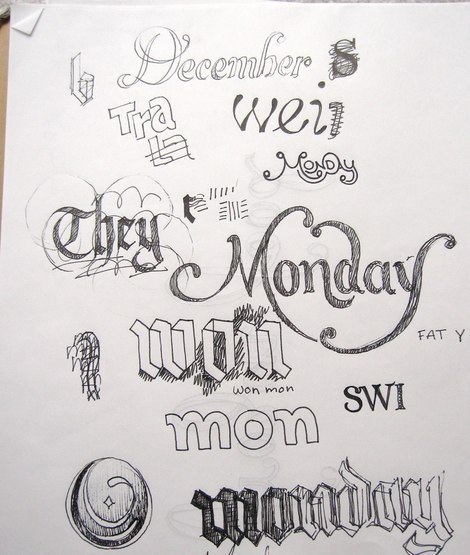 December
S
wei
Tra
la
Monday
They
Monday
won
FAT Y
won mon
SWI
mon
monday